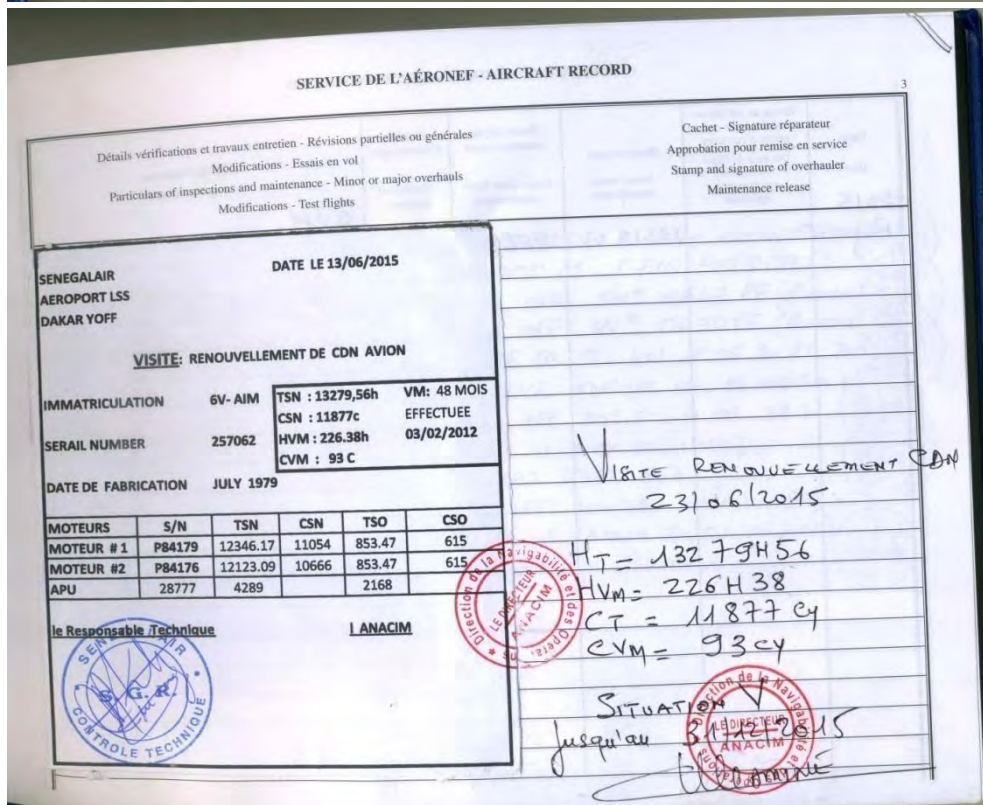 SERVICE DE L'AÉRONEF - AIRCRAFT RECORD
3
Détails vérifications et travaux entretien - Révisions partielles ou générales
Modifications - Essais en vol
Particulars of inspections and maintenance - Minor or major overhauls
Modifications - Test flights
Cachet - Signature réparateur
Approbation pour remise en service
Stamp and signature of overhauler
Maintenance release
SENEGALAIR DATE LE 13/06/2015
AEROPORT LSS
DAKAR YOFF
VISITE: RENOUVELLEMENT DE CDN AVION
IMMATRICULATION 6V- AIM TSN : 13279,56h VM: 48 MOIS
CSN : 11877c EFFECTUEE
SERAIL NUMBER 257062 HVM : 226.38h 03/02/2012
CVM : 93 C
DATE DE FABRICATION JULY 1979
MOTEURS S/N TSN CSN TSO CSO
MOTEUR # 1 P84179 12346.17 11054 853.47 615
MOTEUR #2 P84176 12123.09 10666 853.47 615
APU 28777 4289 2168
le Responsable Technique L ANACIM
S. G. R.
CONTROLE TECHNIQUE
Direction de la Navigabilité et des
LE DIRECTEUR
ANACIM
VISITE RENOUVELLEMENT CDN
23/06/2015
HT = 13279H56
HVM = 226H38
CT = 11877 cy
CVM = 93 cy
SITUATION V
Jusqu'au 31/12/2015
Direction de la Navigabilité et
LE DIRECTEUR
ANACIM